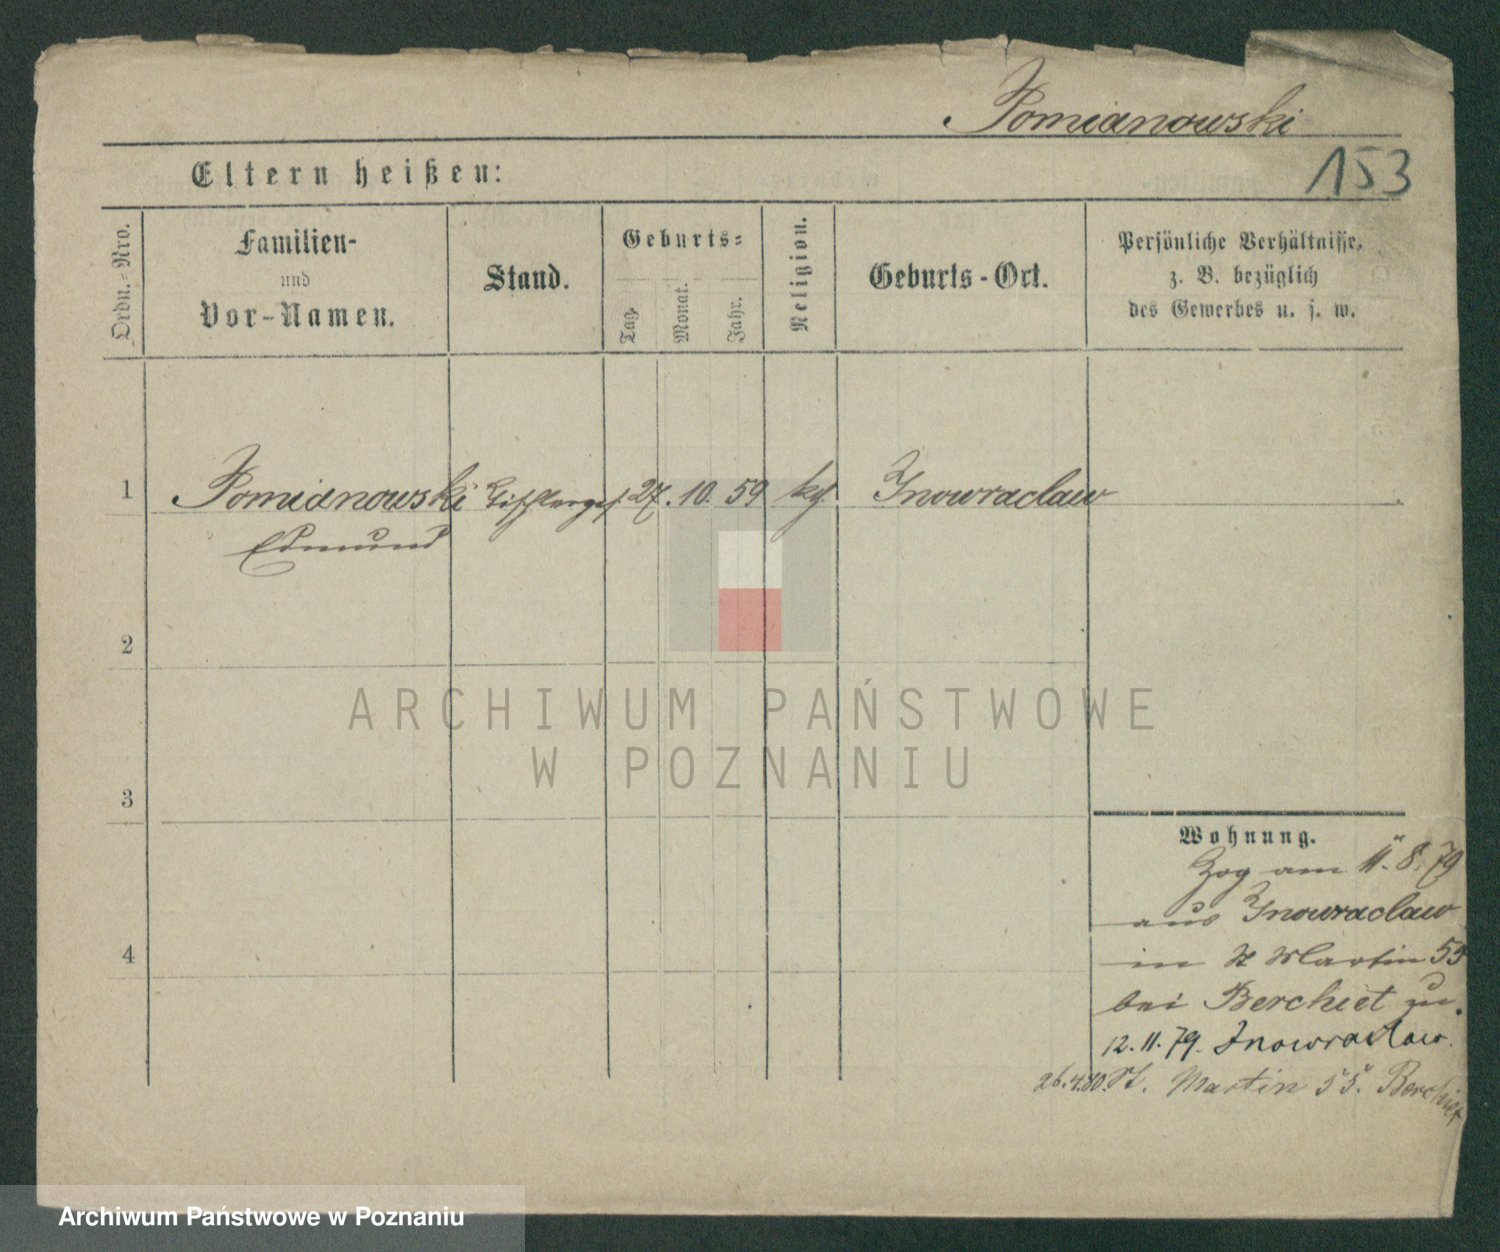 Pomianowski
153
Eltern heißen:
Ordn.-Nro.
Familien-
und
Vor-Namen.
Stand.
Geburts-
Tag.
Monat.
Jahr.
Religion.
Geburts-Ort.
Persönliche Verhältnisse,
z. B. bezüglich
des Gewerbes u. s. w.
1 Pomianowski Tischlerges. 27. 10. 59 kth. Inowraclaw
Edmund
2
ARCHIWUM PAŃSTWOWE
W POZNANIU
3
Wohnung.
Zog am 11. 8. 79
aus Inowraclaw
4
in St Martin 55
bei Berchiet zu.
12. 11. 79. Inowraclaw.
26. 4. 80. St. Martin 55. Berchiet
Archiwum Państwowe w Poznaniu